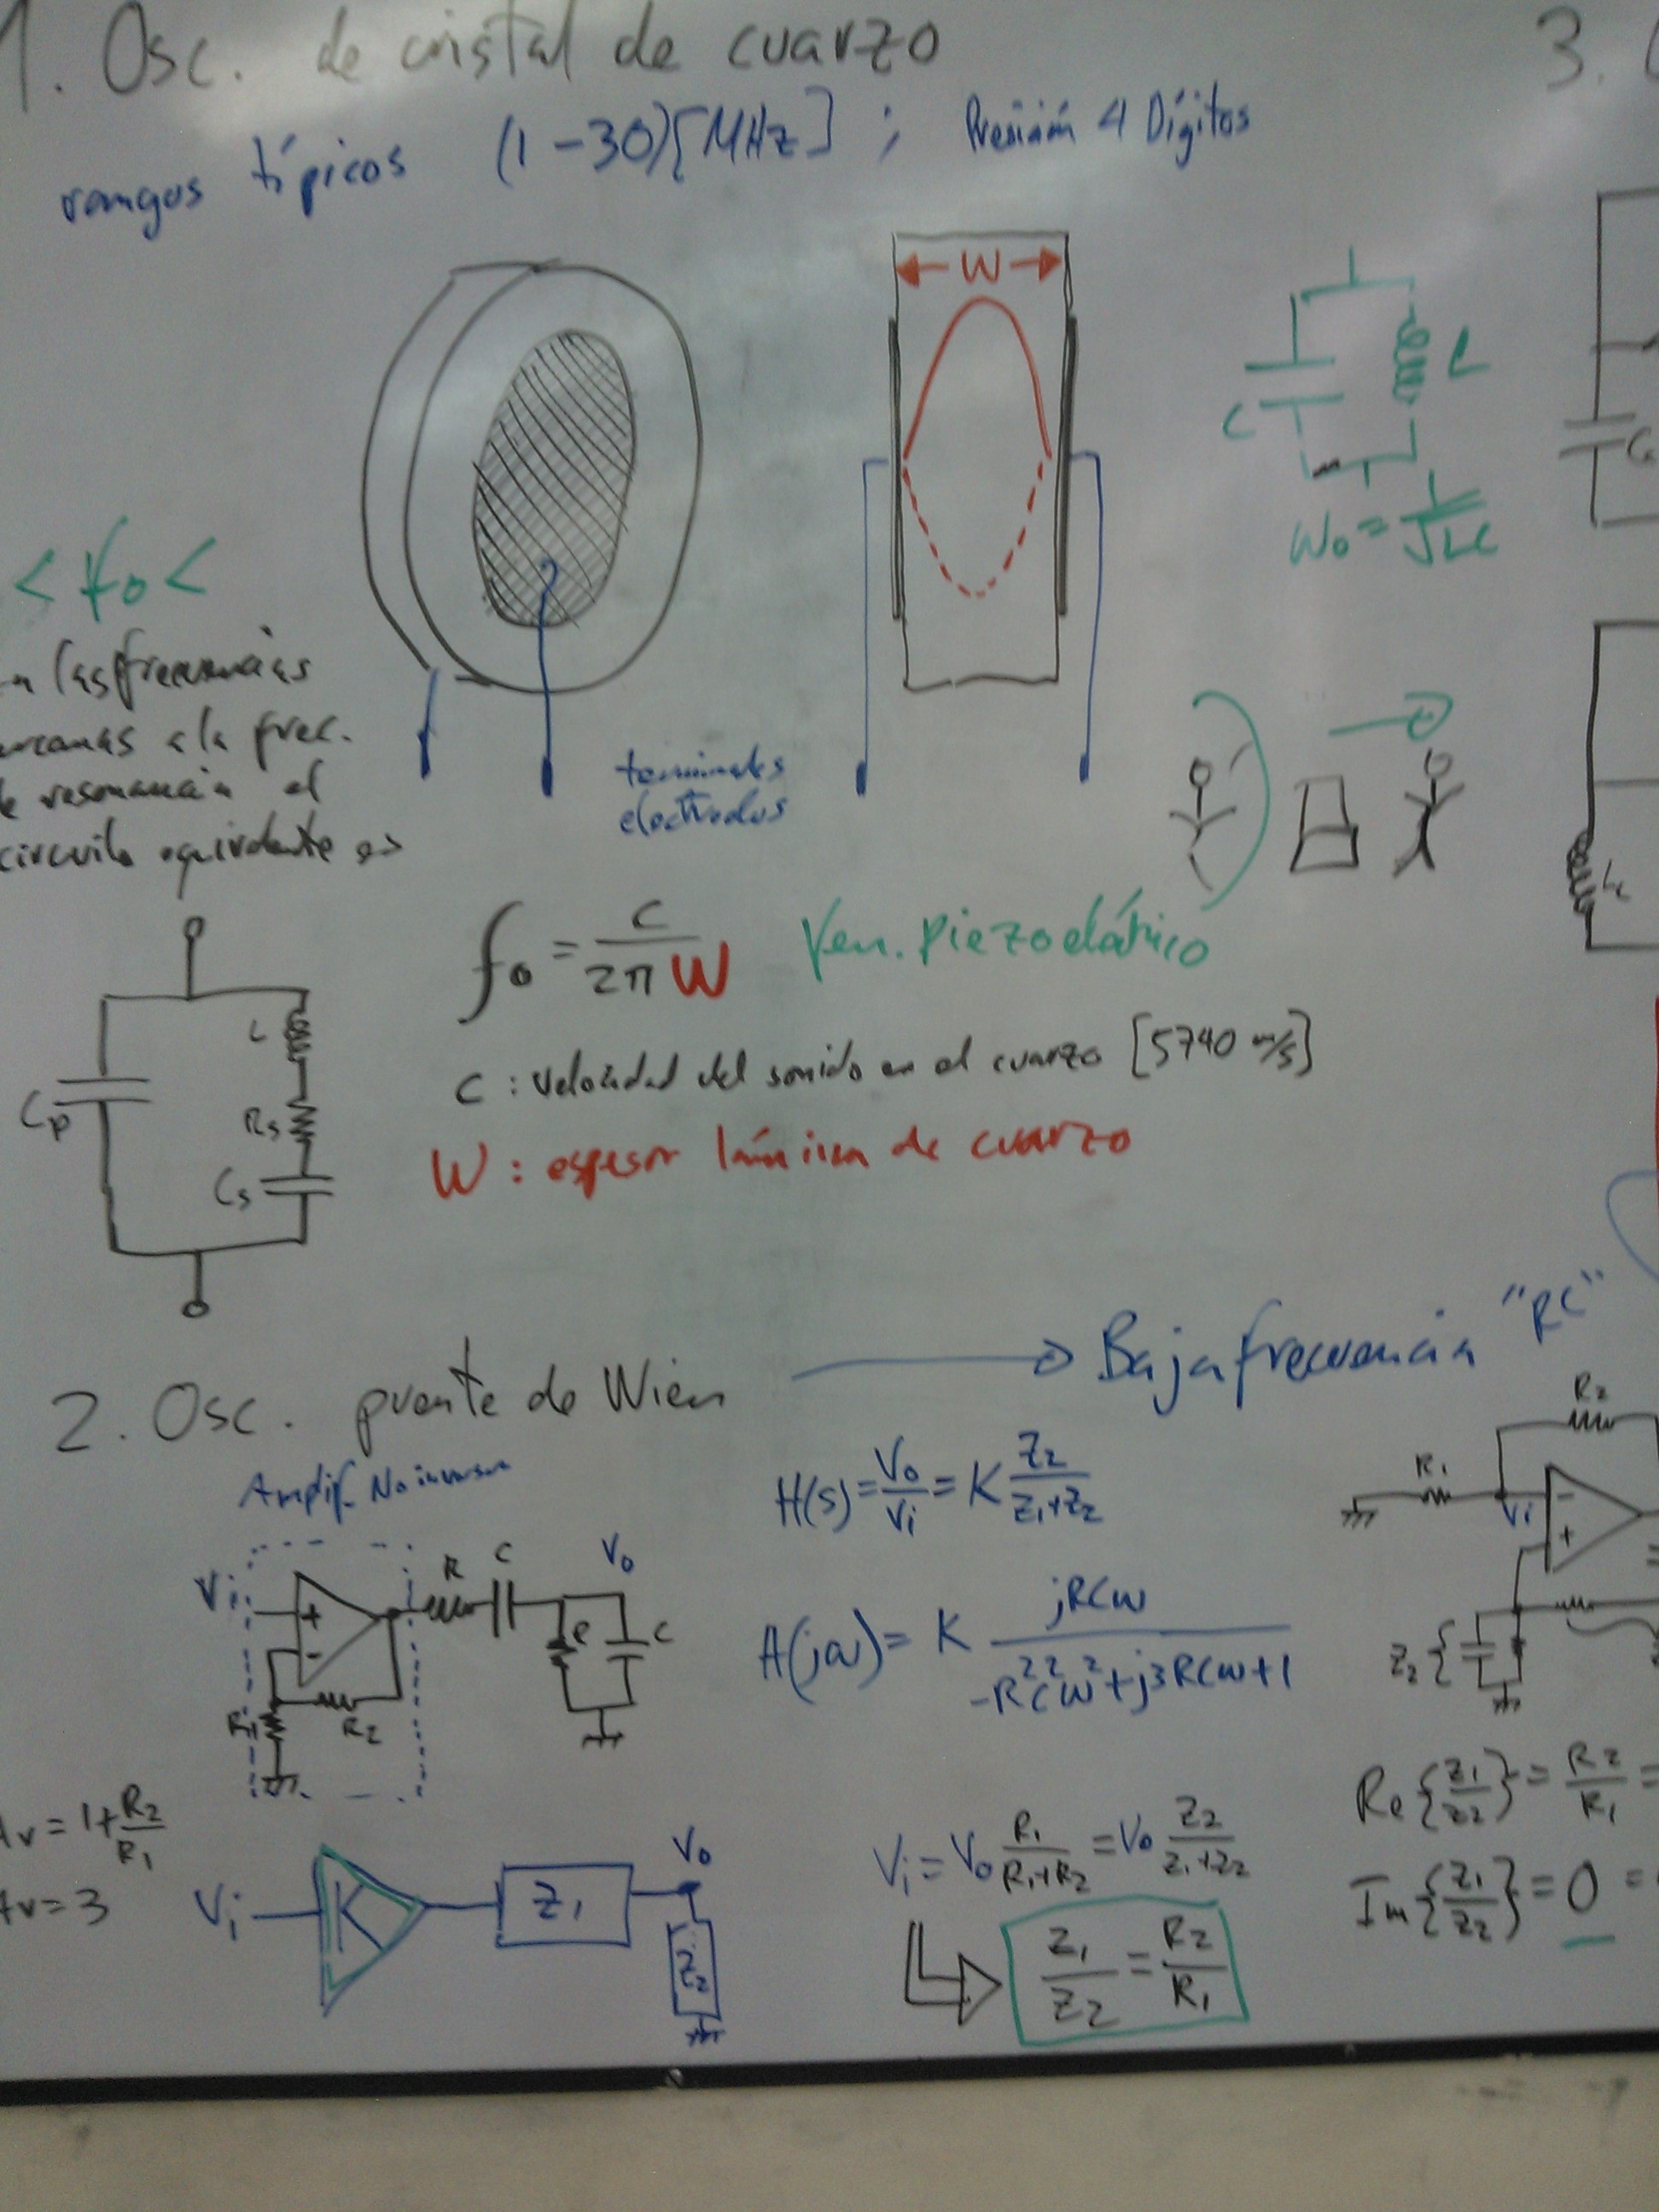 1. Osc. de cristal de cuarzo
rangos típicos (1-30)[MHz] ; Presición 4 Dígitos
3.
W
C
L
W₀ = 1/√LC
< f₀ <
las frecuencias
a la frec.
resonancia el
circuito equivalente es
terminales
electrodos
f₀ = C/2πW
Fen. Piezoeléctrico
C : velocidad del sonido en el cuarzo [5740 m/s]
W : espesor lámina de cuarzo
Cp
L
Rs
Cs
2. Osc. puente de Wien → Baja frecuencia "RC"
Amplif. No inversor
H(s) = Vo/Vi = K Z2/(Z1+Z2)
Vi
+
-
R
C
Vo
R
C
R1
R2
H(jω) = K jRCω/(-R²C²ω²+j3RCω+1)
R2
R1
Vi
-
+
Z2 {
Av = 1+R2/R1
Av = 3
Vi
K
Z1
Vo
Z2
Vi = Vo R1/(R1+R2) = Vo Z2/(Z1+Z2)
Z1/Z2 = R2/R1
Re{Z1/Z2} = R2/R1 =
Im{Z1/Z2} = 0 =